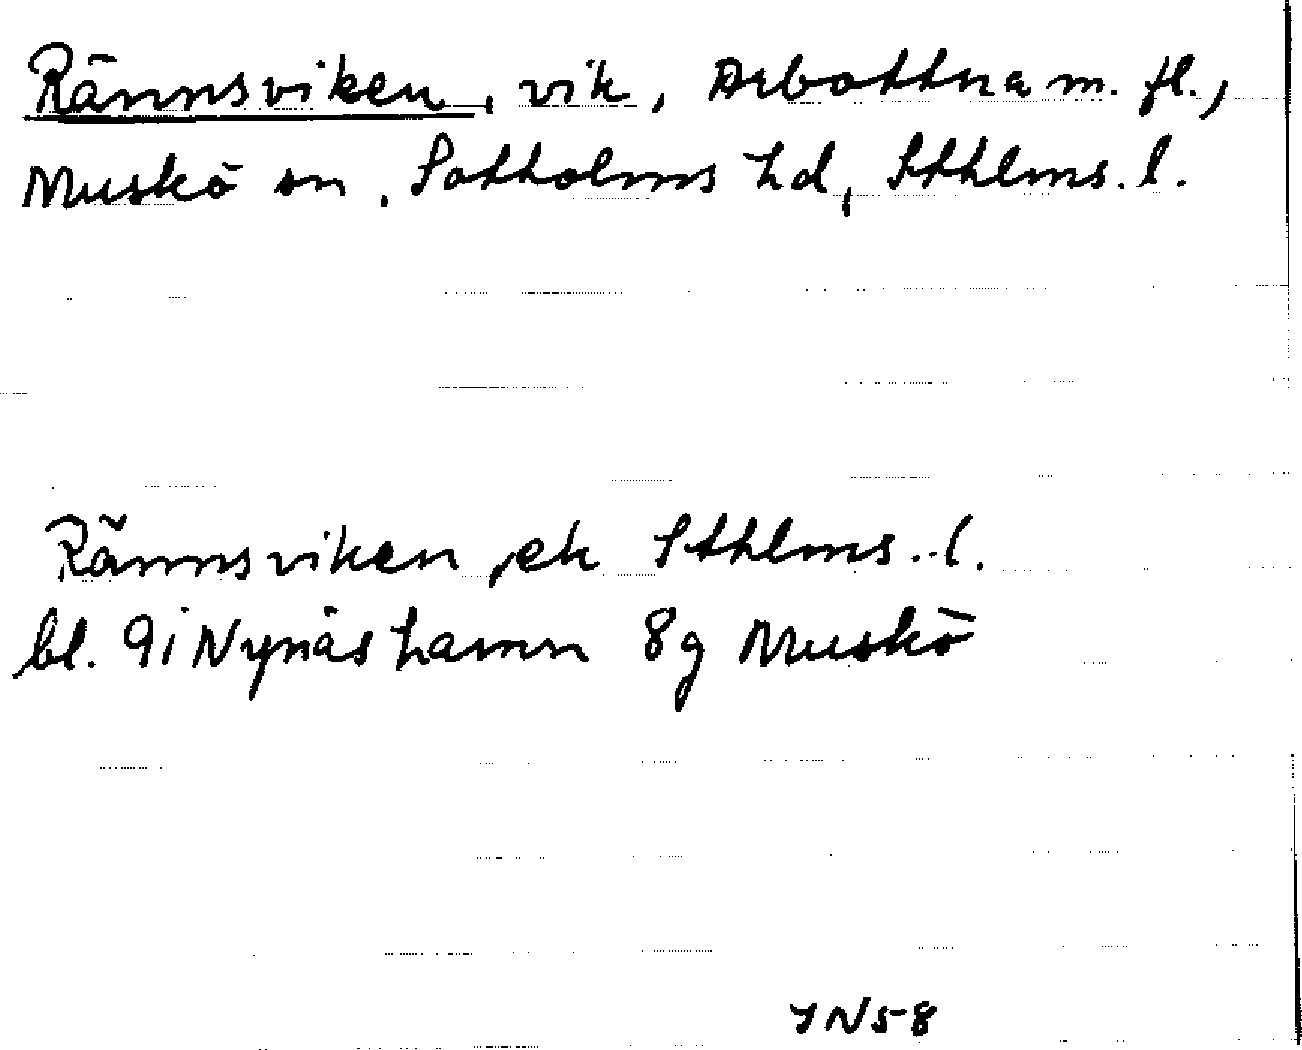 Rännsviken, vik, Arbottna m. fl.,
Muskö sn, Sotholms hd, Sthlms. l.
Rännsviken, ek Sthlms. l.
bl. 9i Nynäshamn 8g Muskö
YN58